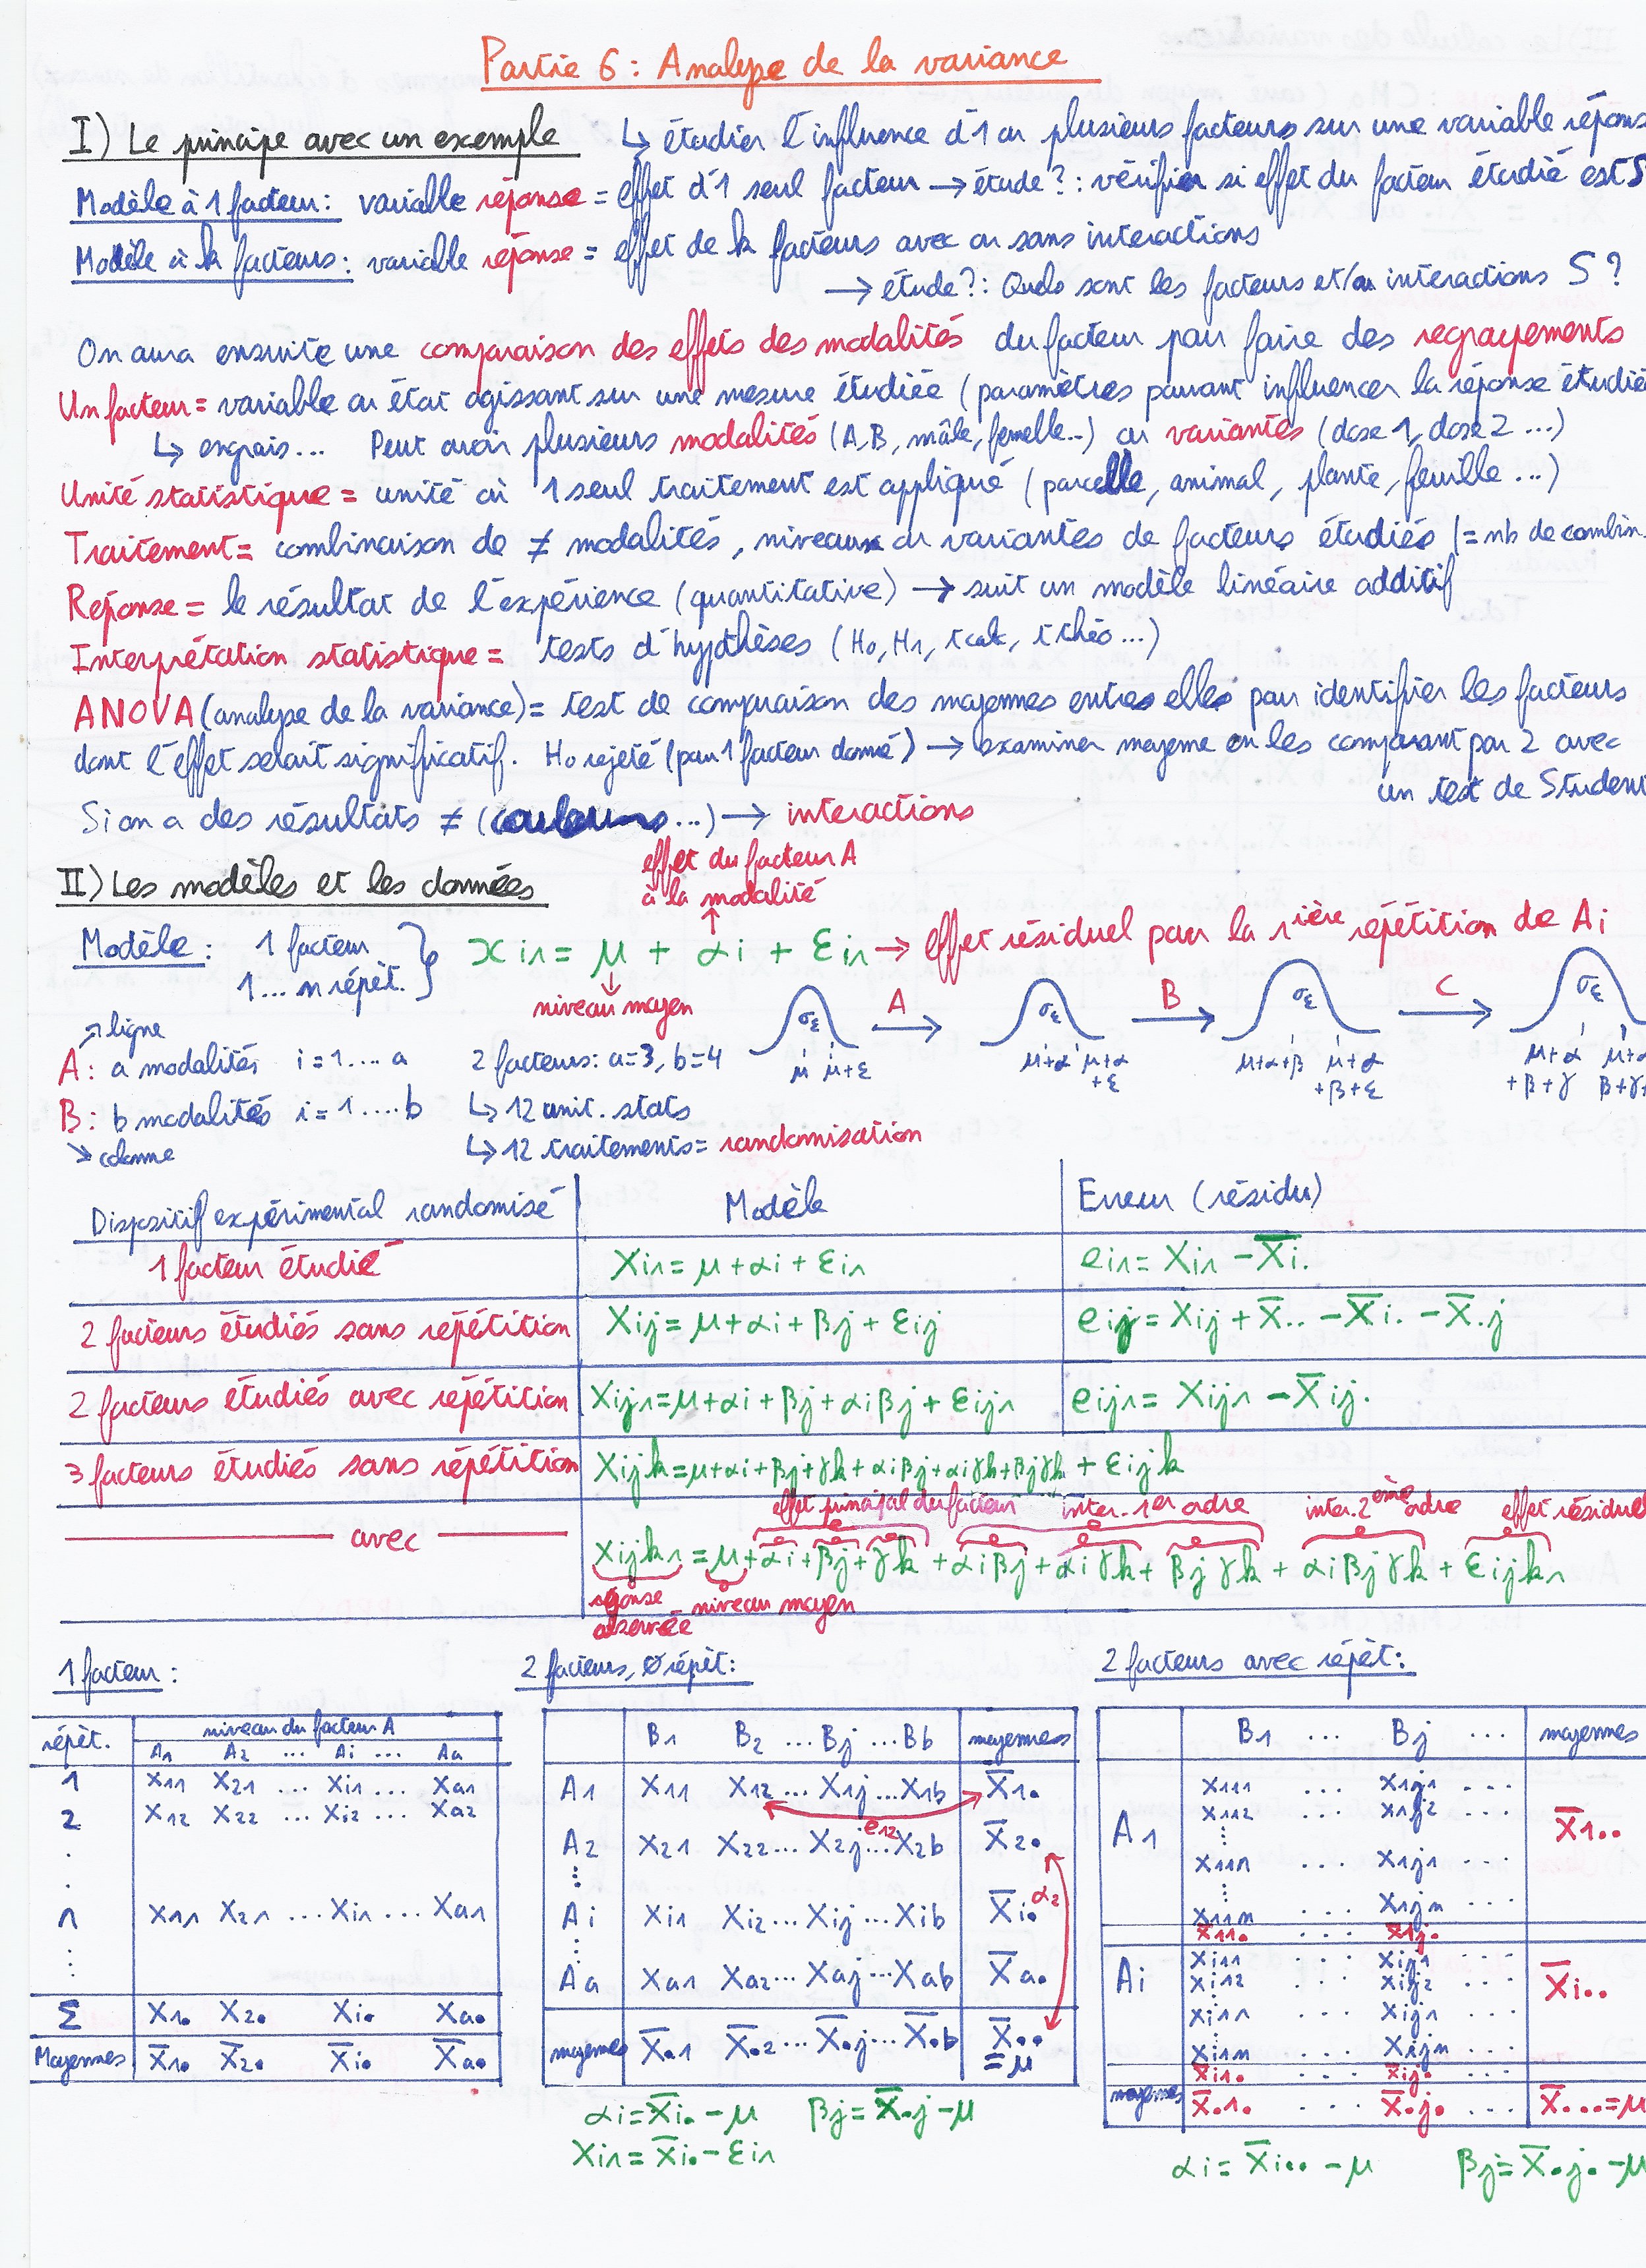 Partie 6 : Analyse de la variance
I) Le principe avec un exemple ↳ étudier l'influence d'1 ou plusieurs facteurs sur une variable répons
Modèle à 1 facteur : variable réponse = effet d'1 seul facteur → étude ? : vérifier si effet du facteur étudié est S
Modèle à k facteurs : variable réponse = effet de k facteurs avec ou sans interactions
→ étude ? : Quels sont les facteurs et/ou interactions S ?
On aura ensuite une comparaison des effets des modalités du facteur pour faire des regroupements
Un facteur = variable ou état agissant sur une mesure étudiée (paramètres pouvant influencer la réponse étudié
↳ engrais... Peut avoir plusieurs modalités (A, B, mâle, femelle...) ou variantes (dose 1, dose 2 ...)
Unité statistique = unité où 1 seul traitement est appliqué (parcelle, animal, plante, feuille ...)
Traitement = combinaison de ≠ modalités, niveaux ou variantes de facteurs étudiés |= nb de combin.
Réponse = le résultat de l'expérience (quantitative) → suit un modèle linéaire additif
Interprétation statistique = tests d'hypthèses (H0, H1, t calc, t théo ...)
ANOVA (analyse de la variance) = test de comparaison des moyennes entres elles pour identifier les facteurs
dont l'effet serait significatif. H0 rejeté (pour 1 facteur donné) → examiner moyenne en les comparant par 2 avec
un test de Student
Si on a des résultats ≠ (couleurs ...) → interactions
effet du facteur A
à la modalité
II) Les modèles et les données
Modèle : 1 facteur
1 ... n répét. } xir = μ + αi + εir → effet résiduel pour la rière répétition de Ai
niveau moyen
σε A σε B σε C σε
μ μ+ε μ+α μ+α+ε μ+α+β μ+α+β+ε μ+α+β+γ μ+
β+γ
↗ ligne
A : a modalités i = 1 .... a 2 facteurs : a=3, b=4
B : b modalités i = 1 .... b ↳ 12 unit. stats
↘ colonne ↳ 12 traitements = randomisation
Dispositif expérimental randomisé Modèle Erreur (résidu)
1 facteur étudié Xir = μ + αi + εir eir = Xir − X̄i.
2 facteurs étudiés sans répétition Xij = μ + αi + βj + εij eij = Xij + X̄.. − X̄i. − X̄.j
2 facteurs étudiés avec répétition Xijr = μ + αi + βj + αiβj + εijr eijr = Xijr − X̄ij.
3 facteurs étudiés sans répétition Xijk = μ + αi + βj + γk + αiβj + αiγk + βjγk + εijk
effet principal du facteur inter. 1er ordre inter. 2ème ordre effet résiduel
avec Xijkr = μ + αi + βj + γk + αiβj + αiγk + βjγk + αiβjγk + εijkr
réponse observée niveau moyen
1 facteur :
répét. niveau du facteur A
A1 A2 ... Ai ... Aa
1 X11 X21 ... Xi1 ... Xa1
2 X12 X22 ... Xi2 ... Xa2
.
.
r X1r X2r ... Xir ... Xar
⋮
Σ X1. X2. Xi. Xa.
Moyennes X̄1. X̄2. X̄i. X̄a.
2 facteurs, Ø répét :
B1 B2 ... Bj ... Bb moyennes
A1 X11 X12 ... X1j ... X1b X̄1.
e12
A2 X21 X22 ... X2j ... X2b X̄2.
⋮
α2
Ai Xi1 Xi2 ... Xij ... Xib X̄i.
⋮
Aa Xa1 Xa2 ... Xaj ... Xab X̄a.
moyennes X̄.1 X̄.2 ... X̄.j ... X̄.b X̄.. = μ
αi = X̄i. − μ βj = X̄.j − μ
Xir = X̄i. − εir
2 facteurs avec répét :
B1 ... Bj ... moyennes
X111 ... X1j1 ...
X112 ... X1j2 ...
⋮
A1 X̄1..
X11r ... X1jr ...
⋮
X11n X1jn ...
X̄11. ... X̄1j.
Xi11 ... Xij1 ...
Ai Xi12 ... Xij2 ... X̄i..
Xi1r ... Xijr ...
⋮
Xi1n ... Xijn ...
X̄i1. ... X̄ij. ...
moyennes X̄.1. ... X̄.j. ... X̄... = μ
αi = X̄i.. − μ βj = X̄.j. − μ